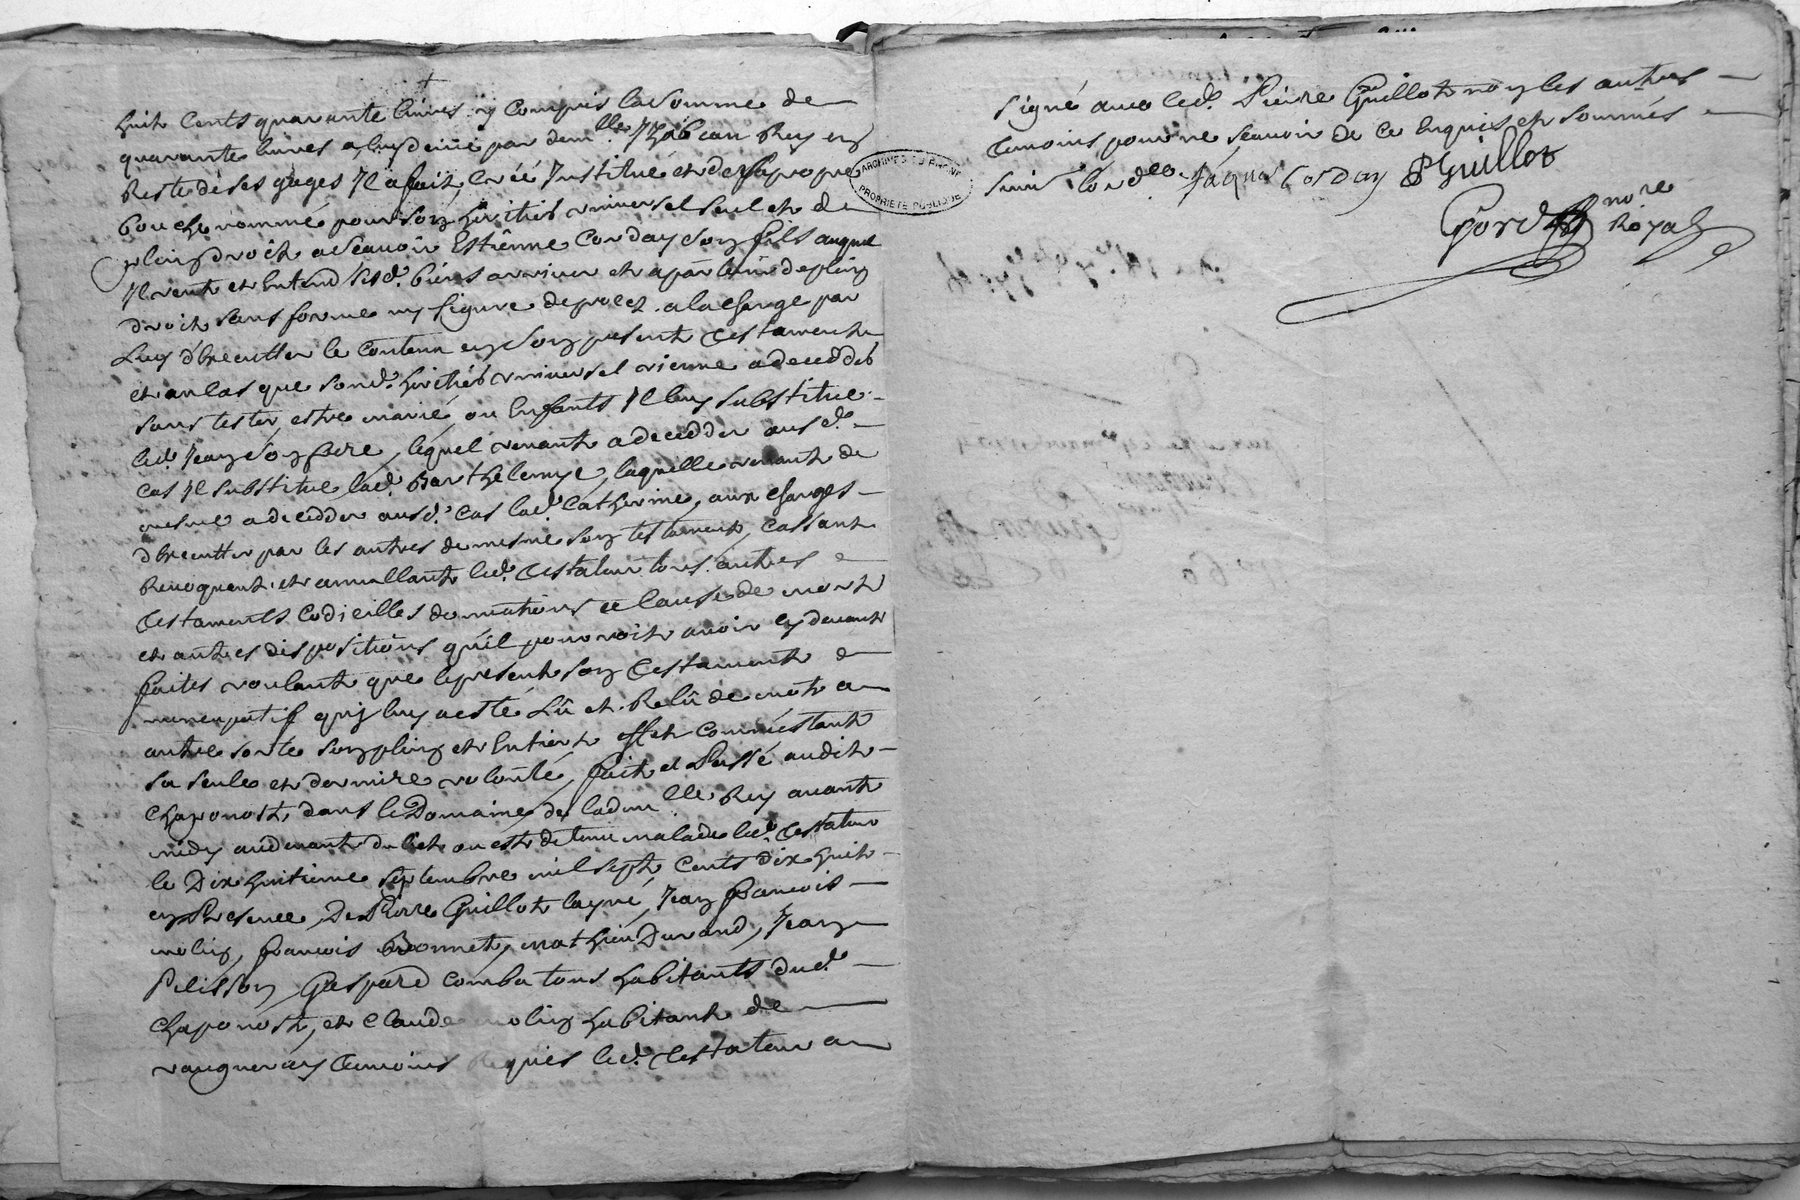 huit cents quarante livres y compris la somme de
quarante livres a luy deüe par dem.lle Rey en
Reste de ses gages Il a fait, créé Institué et de sa propre
bouche nommé pour son heritier universel seul et de
plein droit a scauoir Estienne Corday son fils auquel
Il veut et Entend sesd. biens arriver et apartenir de plein
droit sans forme ny figure de procez. a la charge par
Luy d'Executter le contenu en son present testament
et au cas que sond. heritier universel vienne a decedder
sans tester, estre marié, ou Enfants Il luy substitue
led. Jean son frere, lequel venant a decedder ausd.
cas Il substitue lad. Barthelemye, laquelle venant de
mesme a decedder ausd. cas lad. Catherine, aux charges
d'Executter par les autres de mesme son testament, cassant
Revoquant et annullant led. testateur tous autres
testaments Codicilles donnations a cause de mort
et autres dispositions qu'il pourroit auoir cy devant
faites voulant que le present son testament
nuncupatif quy luy a esté Lû et Relû de mot a
autre sorte son plein et Entier effet comme estant
sa seule et derniere volonté, fait et Passé audit
Chaponost, dans le Domaine de lad.lle Rey avant
midy au devant du lict ou est detenu malade led. testateur
le Dix huitieme septembre mil sept cents dix huit
en Presence De Pierre Guillot layné, Jean francois
molin, francois Bonnet, mathieu Durand, Jean
Pelisson, Gaspard Comba tous habitants dud.
Chaponost, et Claude molin habitant de
vaugneray temoins Requis led. testateur a
signé avec led. Pierre Guillot non les autres
temoins pour ne scauoir de ce Enquis et sommés
ARCHIVES DU RHONE
PROPRIETE PUBLIQUE
Jáques Corday P Guillot
nore
Royal